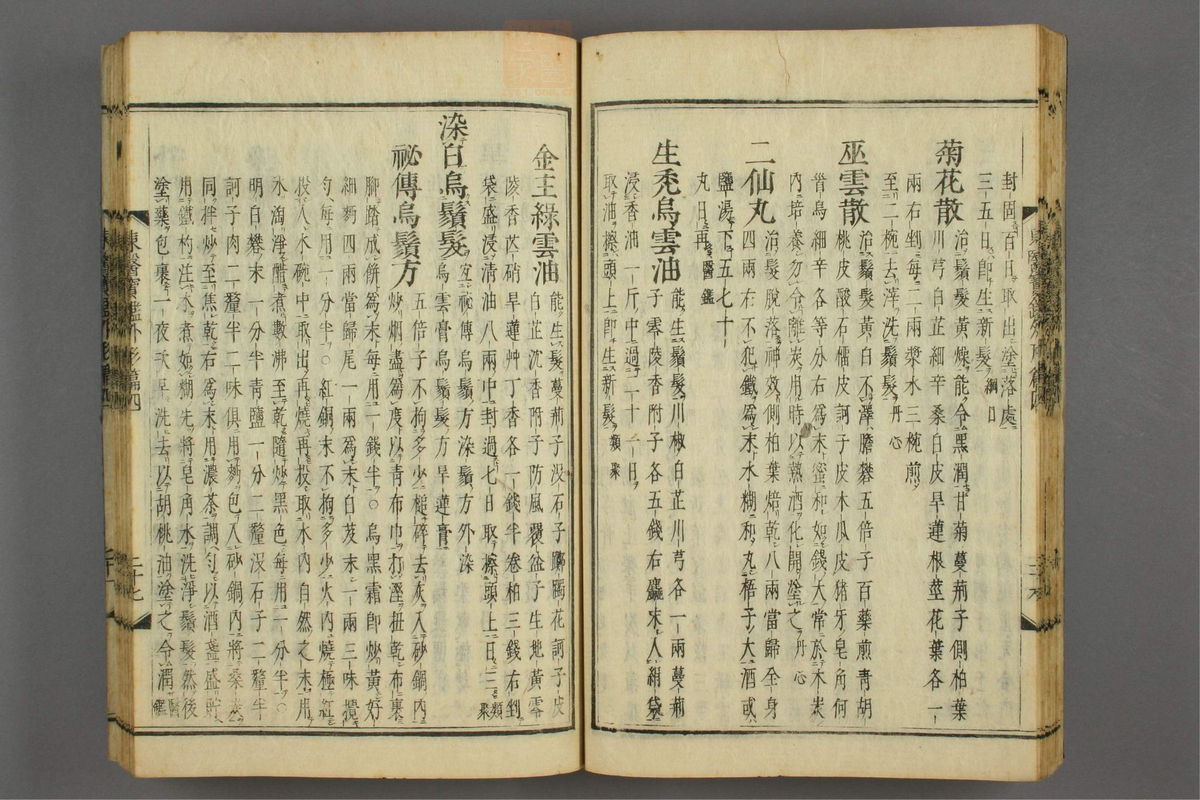 封固百日取出塗落處
三五日卽生新髮 綱目
菊花散 治鬚髮黃燥能令黑潤甘菊蔓荊子側柏葉
川芎白芷細辛桑白皮旱蓮根莖花葉各一
兩右剉每二兩漿水三椀煎
至二椀去滓洗鬚髮 丹心
巫雲散 治鬚髮黃白不澤膽礬五倍子百藥煎靑胡
桃皮酸石榴皮訶子皮木瓜皮猪牙皂角何
首烏細辛各等分右爲末蜜和如錢大常於木炭
內培養勿令離炭用時以熱酒化開塗之 丹心
二仙丸 治髮脫落神效側柏葉焙乾八兩當歸全身
四兩右不犯鐵爲末水糊和丸梧子大酒或
鹽湯下五七十
丸日再 醫鑑
生禿烏雲油 能生鬚髮川椒白芷川芎各一兩蔓荊
子零陵香附子各五錢右麤末入絹袋
浸香油一斤中過二十一日
取油擦頭上卽生新髮 類聚
金主綠雲油 能生髮蔓荊子沒石子躑躅花訶子皮
白芷沉香附子防風覆盆子生地黃零
陵香芒硝旱蓮艸丁香各一錢半卷柏三錢右剉
袋盛浸淸油八兩中封過七日取擦頭上日三 類聚
染白烏鬚髮 宜祕傳烏鬚方染鬚方外染
烏雲膏烏鬚髮方旱蓮膏
祕傳烏鬚方 五倍子不拘多少槌碎去灰入砂鍋內
炒烟盡爲度以靑布巾打濕扭乾布裹
腳踏成餠爲末每用一錢半○烏黑霜卽炒黃好
細麪四兩當歸尾一兩爲末白芨末一兩三味攪
勻每用一分半○紅銅末不拘多少火內燒極紅
投入水碗中取出再燒再投取水內自然之末用
水淘淨醋煮數沸至乾隨炒黑色每用一分半○
明白礬末一分半靑鹽一分二釐沒石子二釐半
訶子肉二釐半二味俱用麪包入砂鍋內將桑炭
同拌炒至焦乾右爲末用濃茶調勻以酒盞盛貯
用鐵杓注水煮如糊先將皂角水洗淨鬚髮然後
塗藥包裹一夜次早洗去以胡桃油塗之令潤 醫鑑
東醫寶鑑外形篇四
二十七